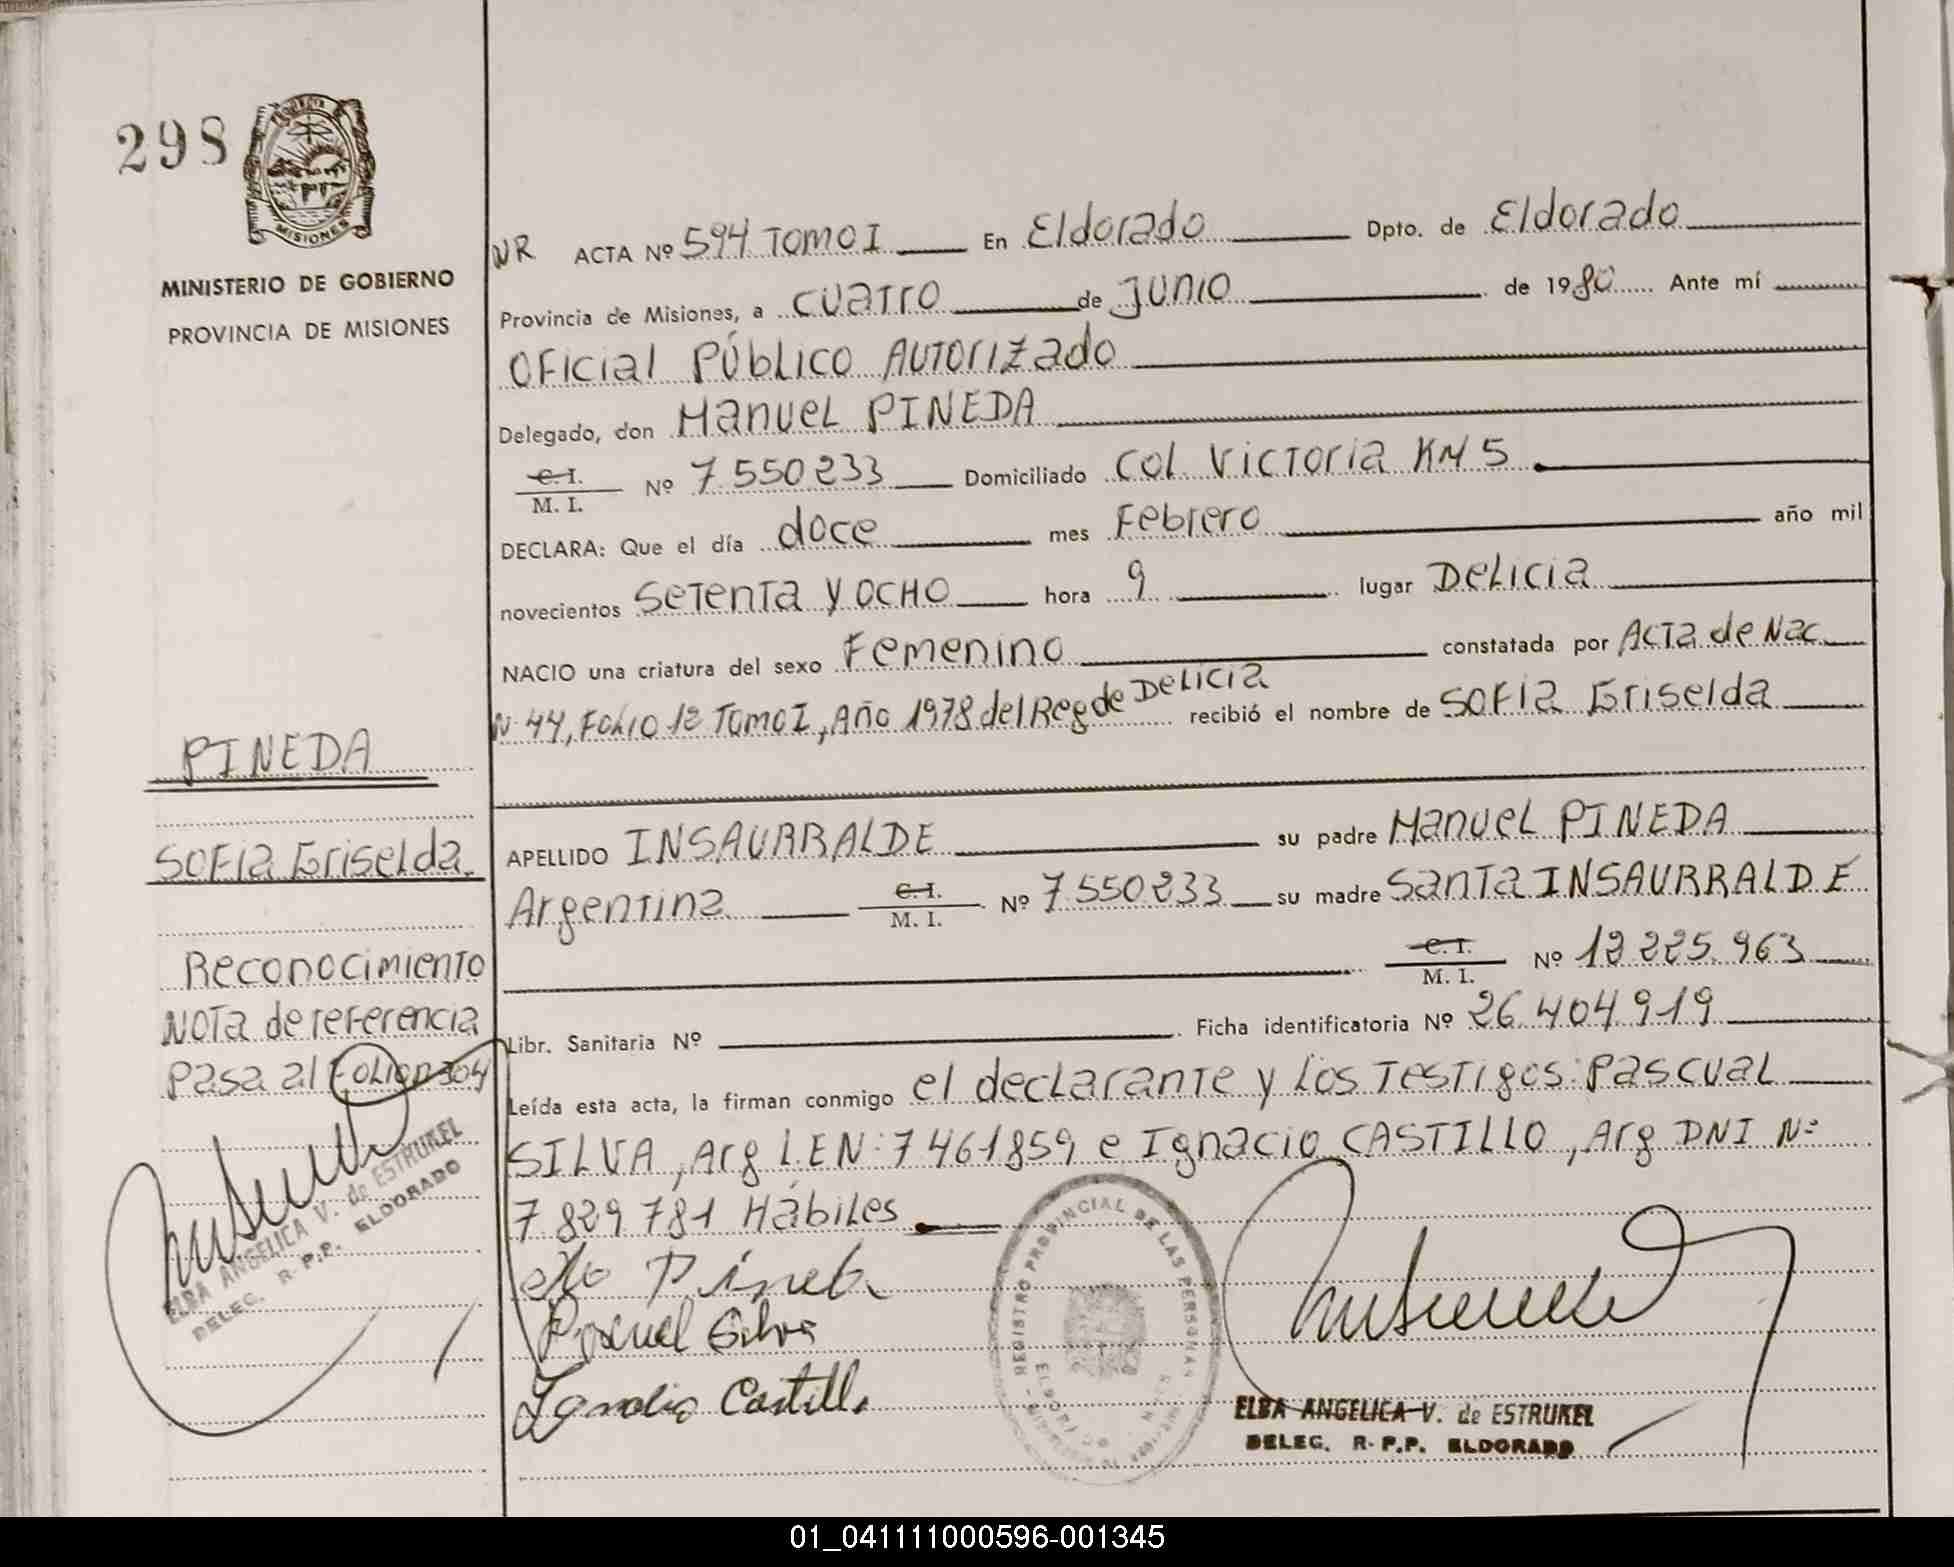 298
MISIONES
MINISTERIO DE GOBIERNO
PROVINCIA DE MISIONES
PINEDA
SOFIA Griselda.
Reconocimiento
NOTA de referencia
Pasa al Folio nº 304
ELBA ANGELICA V. de ESTRUKEL
DELEG. R.P.P. ELDORADO
NR ACTA Nº 594 TOMO I En Eldorado Dpto. de Eldorado
Provincia de Misiones, a CUATRO de JUNIO de 1980 Ante mí
OFICIAL PÚBLICO AUTORIZADO
Delegado, don Manuel PINEDA
C. I. / M. I. Nº 7.550.233 Domiciliado Col. Victoria KM 5
DECLARA: Que el día doce mes Febrero año mil
novecientos SETENTA Y OCHO hora 9 lugar Delicia
NACIO una criatura del sexo Femenino constatada por ACTA de Nac
Nº 44, Folio 12 Tomo I, Año 1978 del Reg de Delicia recibió el nombre de SOFIA Griselda
APELLIDO INSAURRALDE su padre Manuel PINEDA
Argentina C. I. / M. I. Nº 7.550.233 su madre Santa INSAURRALDE
C. I. / M. I. Nº 12.225.963
Libr. Sanitaria Nº Ficha identificatoria Nº 26.404.919
Leída esta acta, la firman conmigo el declarante y los testigos: Pascual
SILVA, Arg L.E Nº 7461859 e Ignacio CASTILLO, Arg DNI Nº
7.829.781 Hábiles
Pineda
Pascual Silva
Ignacio Castillo
REGISTRO PROVINCIAL DE LAS PERSONAS
ELBA ANGELICA V. de ESTRUKEL
DELEG. R.P.P. ELDORADO
01_041111000596-001345